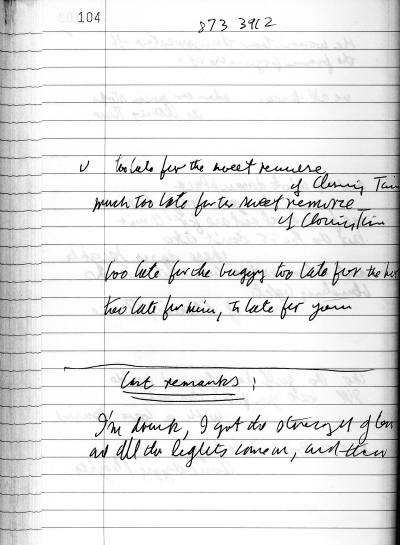 104
873 3912
too late for the sweet remorse
of Closing Time
much too late for the sweet remorse
of Closing Time
too late for the buggy too late for the
too late for mine, to late for yours
last remarks:
I'm drunk, I got the
and all the lights come on, and